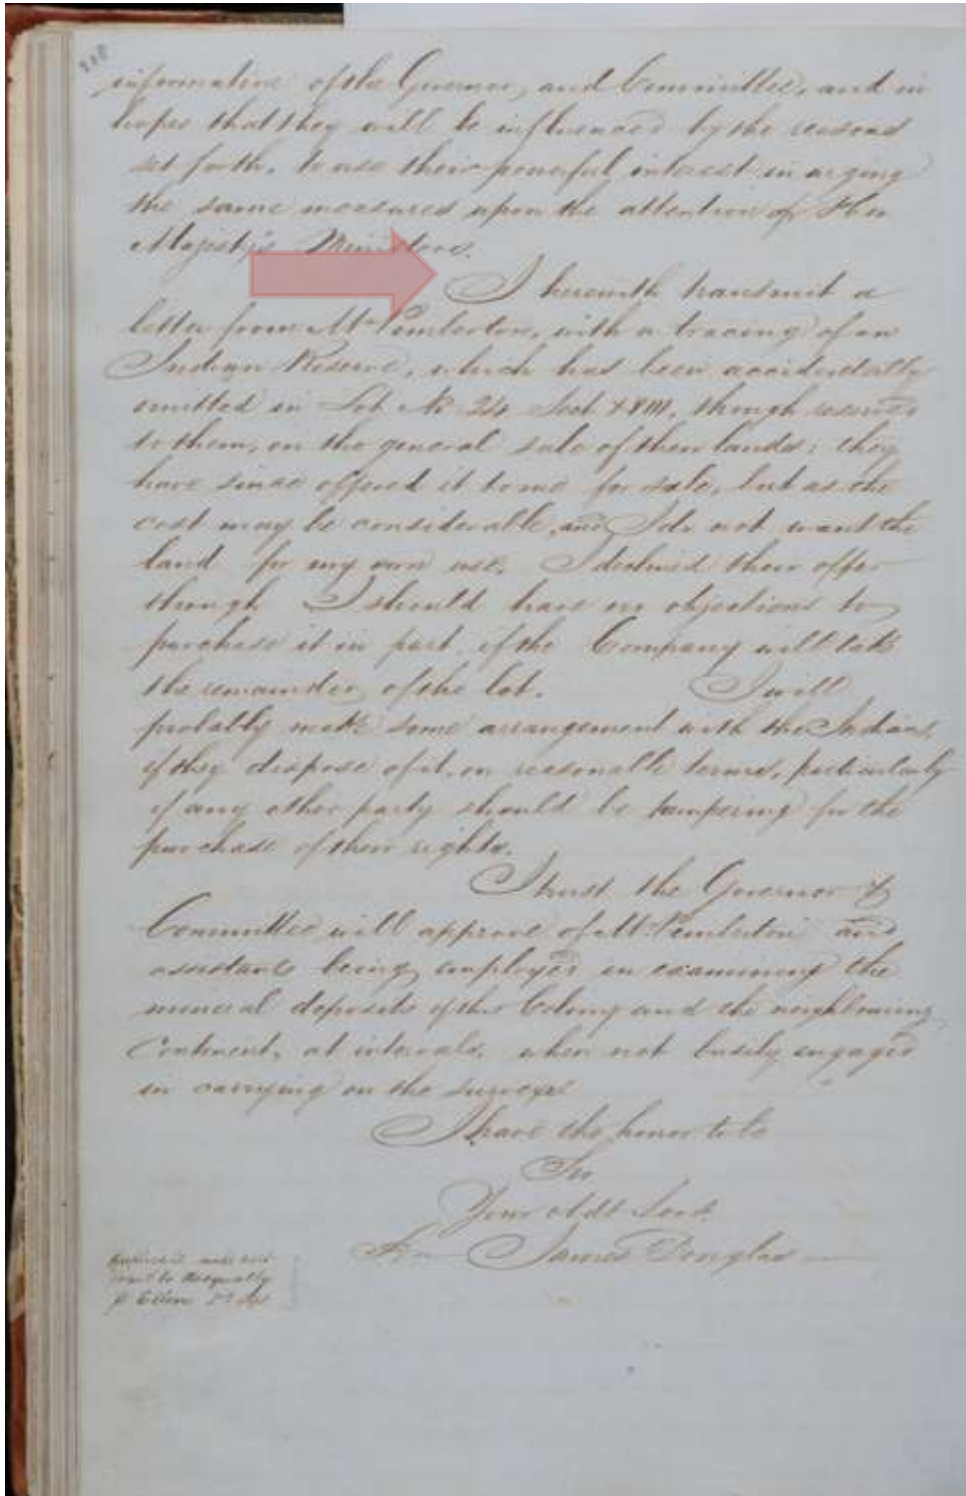 information of the Governor, and Committee, and in
hopes that they will be influenced by the reasons
set forth, to use their powerful interest in urging
the same measures upon the attention of Her
Majesty's Ministers.
I herewith transmit a
letter from Mr Pemberton, with a tracing of an
Indian Reserve, which has been accidentally
omitted in Lot No 24 Sect XVIII, though reserved
to them, on the general sale of their lands; they
have since offered it to me for sale, but as the
cost may be considerable, and I do not want the
land for my own use, I declined their offer
though I should have no objections to
purchase it in part, if the Company will take
the remainder of the lot. I will
probably make some arrangement with the Indians,
if they dispose of it, on reasonable terms, particularly
if any other party should be tampering for the
purchase of their rights.
I trust the Governor &
Committee will approve of Mr Pemberton and
assistants being employed in examining the
mineral deposits of this Colony and the neighbouring
Continent, at intervals, when not busily engaged
in carrying on the surveys.
I have the honor to be
Sir
Your obdt Servt
James Douglas
sent to Nisqually